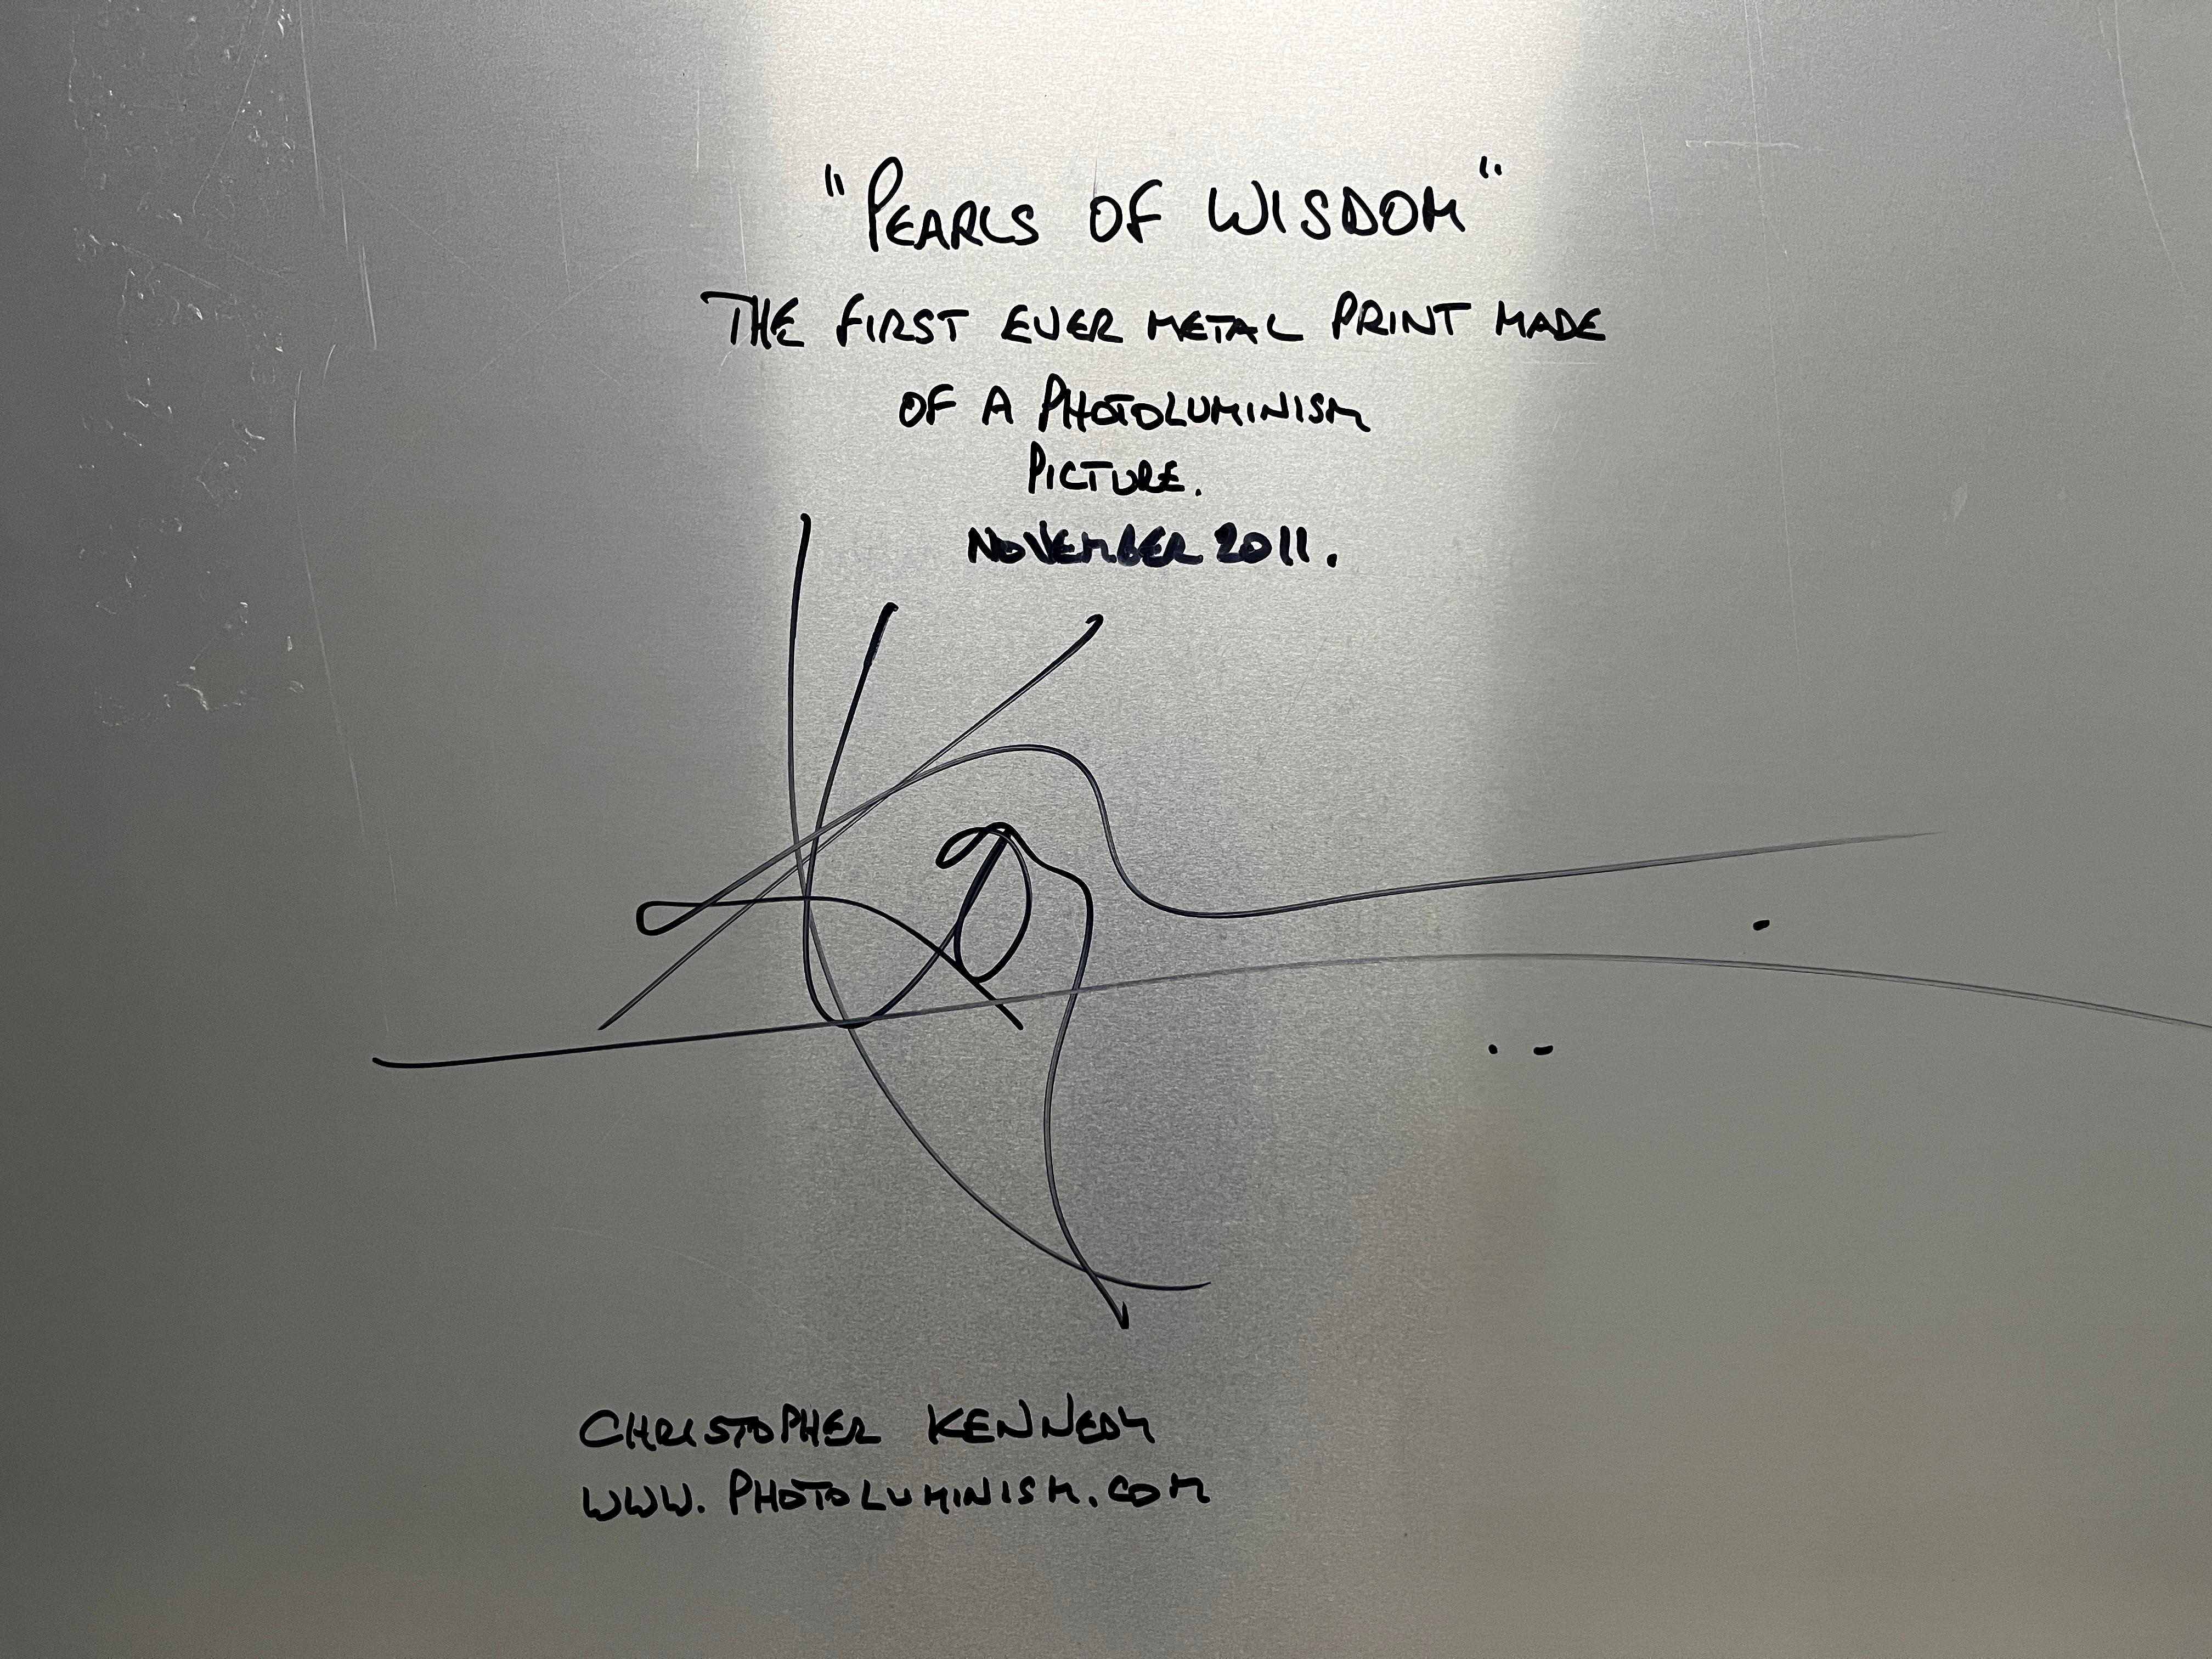 "PEARLS OF WISDOM"
THE FIRST EVER METAL PRINT MADE
OF A PHOTOLUMINISM
PICTURE.
NOVEMBER 2011.
CHRISTOPHER KENNEDY
WWW.PHOTOLUMINISM.COM